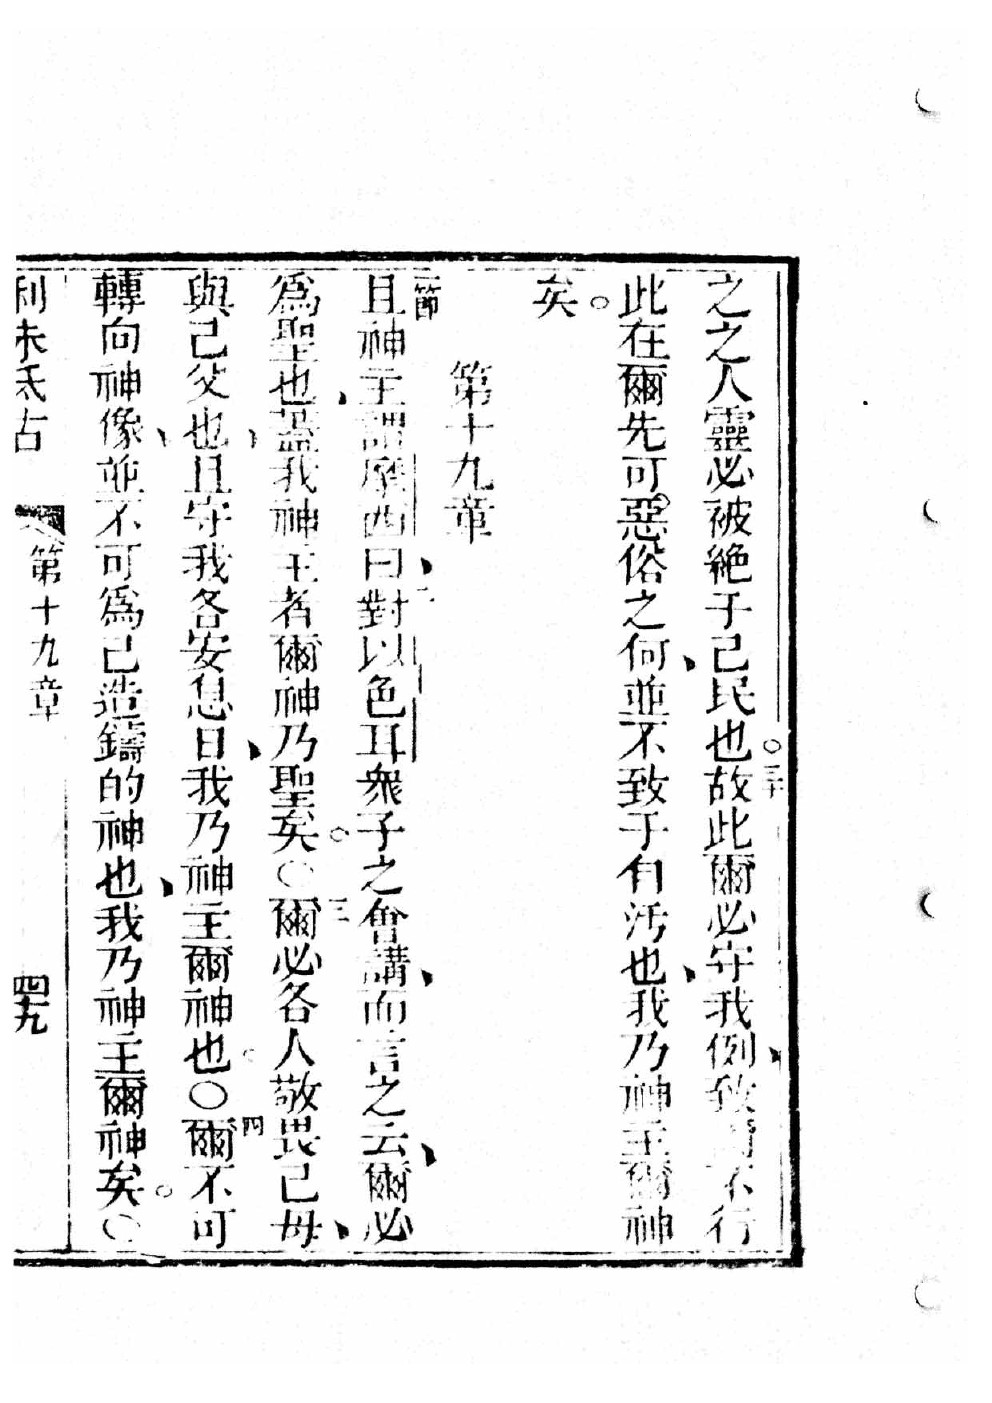 之之人靈必被絶于己民也○三十故此爾必守我例致爾不行
此在爾先可惡俗之何並不致于有汚也我乃神主爾神
矣○
第十九章
一節且神主謂摩西曰二對以色耳衆子之會講而言之云爾必
爲聖也蓋我神主者爾神乃聖矣○三爾必各人敬畏己母
與己父也且守我各安息日我乃神主爾神也○四爾不可
轉向神像並不可爲己造鑄的神也我乃神主爾神矣○
利未氏古 第十九章 四九